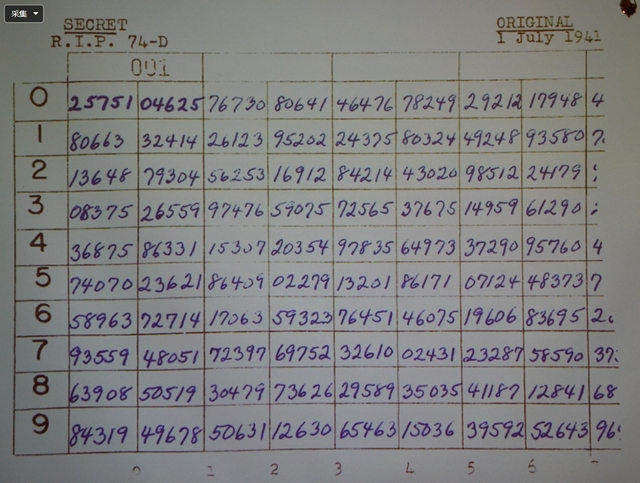 采集
SECRET ORIGINAL
R.I.P. 74-D 1 July 1941
001
0 25751 04625 76730 80641 46476 78249 29212 17948 4
1 80663 32414 26123 95202 24375 80324 49248 93580 7
2 13648 79304 56253 16912 84214 43020 98512 24179
3 08375 26559 97476 59075 72565 37675 14959 61290
4 36875 86331 15307 20354 97835 64973 37290 95760 4
5 74070 23621 86409 02279 13201 86171 07124 48373 7
6 58963 72714 17063 59323 76451 46075 19606 83695 2
7 93559 48051 72397 69752 32610 02431 23287 58590 37
8 63908 50519 30479 73626 29589 35035 41187 12841 68
9 84319 49678 50631 12630 65463 15036 39592 52643 96
0 1 2 3 4 5 6 7